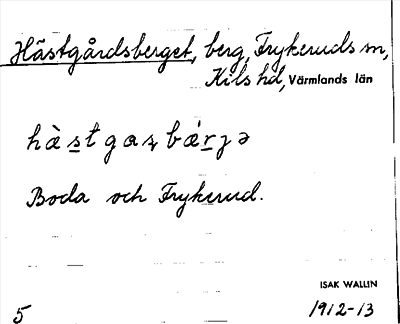 Hästgårdsberget, berg, Frykeruds sn,
Kils hd, Värmlands län
Boda och Frykerud.
ISAK WALLIN
5 1912-13